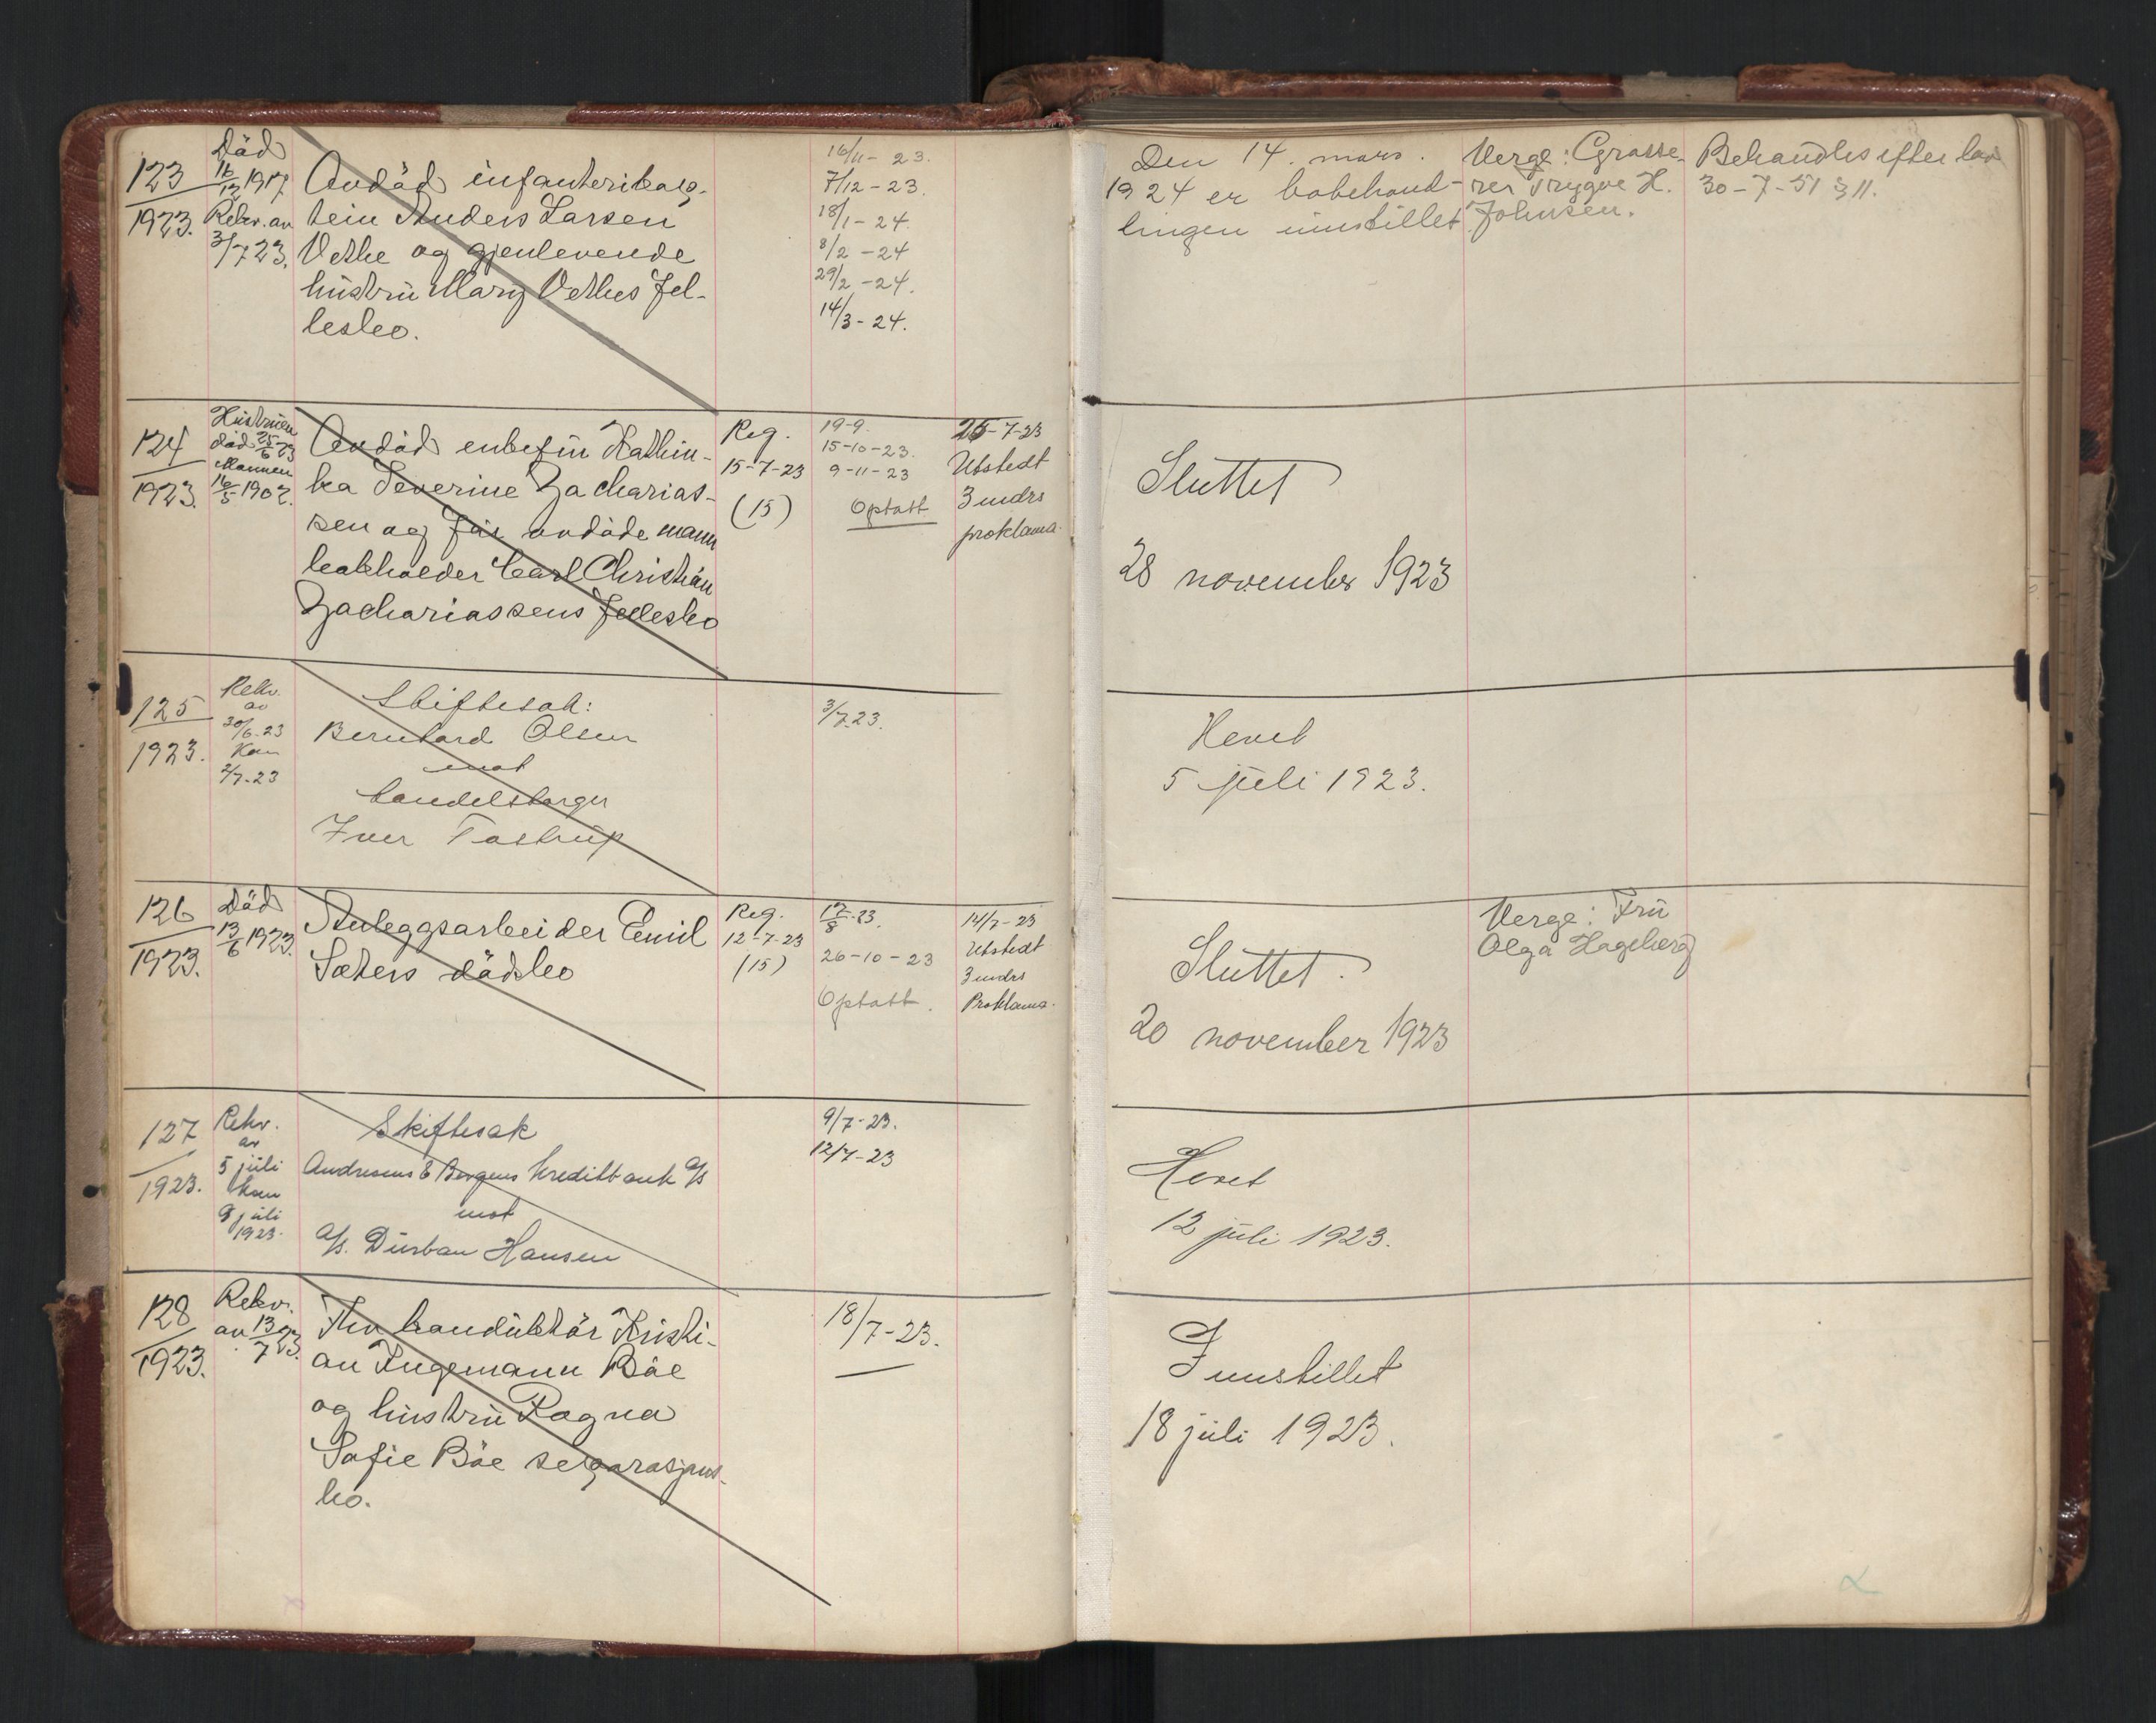 123
1923.
Död
16/12 1917
Rekv. av
3/7 23.
Avdöd infanterikap-
tein Anders Larsen
Vethe og gjenlevende
hustru Mary Vethes fel-
lesbo.
16/11 - 23.
7/12 - 23.
18/1 - 24.
8/2 - 24
29/2 - 24.
14/3 - 24.
Den 14. mars.
1924 er bobehand-
lingen innstillet
Verge: Grosse-
rer Trygve H.
Johnsen.
Behandles efter lov
30-7-51 § 11.
124
1923.
Hustruen
död 25/6 23
Mannen
16/5 1902.
Avdöd enkefru Kathin-
ka Severine Zacharias-
sen og för avdöde mann
Carl Christian
Zachariassens fellesbo
Reg.
15-7-23
(15)
19-9.
15-10-23.
9-11-23
Optatt
25-7-23
Utstedt
3 mdrs
proklama.
Sluttet
28 november 1923
125
1923.
Rekv.
av
30/6-23
Kom
2/7-23
Skiftesak:
Bernhard Olsen
mot
handelsborger
Iver Tostrup
3/7.23.
Hevet
5 juli 1923.
126
1923.
Död
13/6 1923.
Anleggsarbeider Emil
Sæters dödsbo
Reg.
12-7-23
(15)
17/8-23.
26-10-23
Optatt.
14/7-23
Utstedt
3 mdrs
Proklama.
Sluttet.
20 november 1923
Verge: Fru
Olga Hageberg
127
1923.
Rekv.
av
5 juli
kom
9 juli
1923.
Skiftesak
Andresens & Bergens Kreditbank A/S
mot
A/S. Durban Hansen
9/7-23.
12/7-23
Hevet
12 juli 1923.
128
1923.
Rekv.
av 13/7 23.
Fhv konduktör Kristi-
an Ingemann Böe
og hustru Ragna
Sofie Böe separasjons-
bo.
18/7-23.
Innstillet
18 juli 1923.